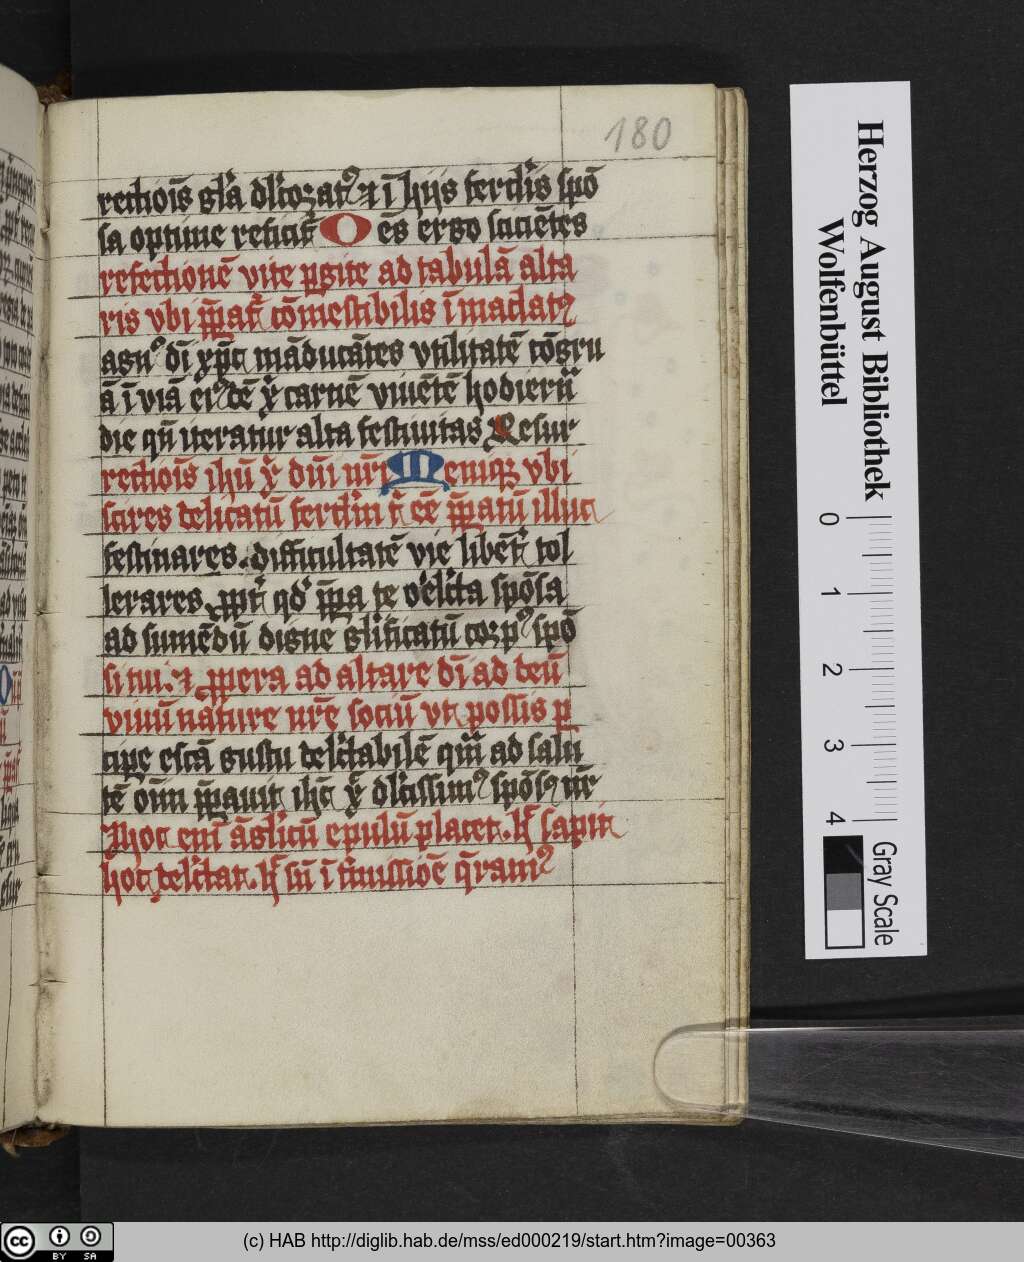 180
rectiōis gl'a dl'cozat᷒ ⁊ ī hijs fercl'is spō
sa optime reficit᷒ Oēs ergo sciētes
refectionē vite pgite ad tabulā alta
ris vbi pp̄at᷒ cōmestibilis īmaclat᷒
agn᷒ dī xp̄c māducātes vtilitatē cōgru
ā ī viā
carnē viuētē hodiern̄
die qn̄ iteratur alta festiuitas Resur
rectiōis ihū x̄ dn̄i nr̄i Meniqꝫ vbi
scires delicatū fercl'm t᷒ eē pp̄atū illuc
festinares. difficultatē vie libēt᷒ tol
lerares ppt᷒ qd' pp̄a te o delc̄ta spōsa
ad sumēdū digne gl'ificatū corp᷒ spō
si tui. ⁊ ppera ad altare dī ad deū
viuū nature nr̄e sociū vt possis p
cipe escā gustu delc̄tabilē qm̄ ad salu
tē oīm pp̄auit ihc̄ x̄ dl'cissim᷒ spōs᷒ nr̄
hoc em̄ āgl'icū epulū placet. hͦ sapit
hoc delc̄tat. hͦ sū ī
Herzog August Bibliothek
Wolfenbüttel
0 1 2 3 4
Gray Scale
cc BY SA
(c) HAB http://diglib.hab.de/mss/ed000219/start.htm?image=00363